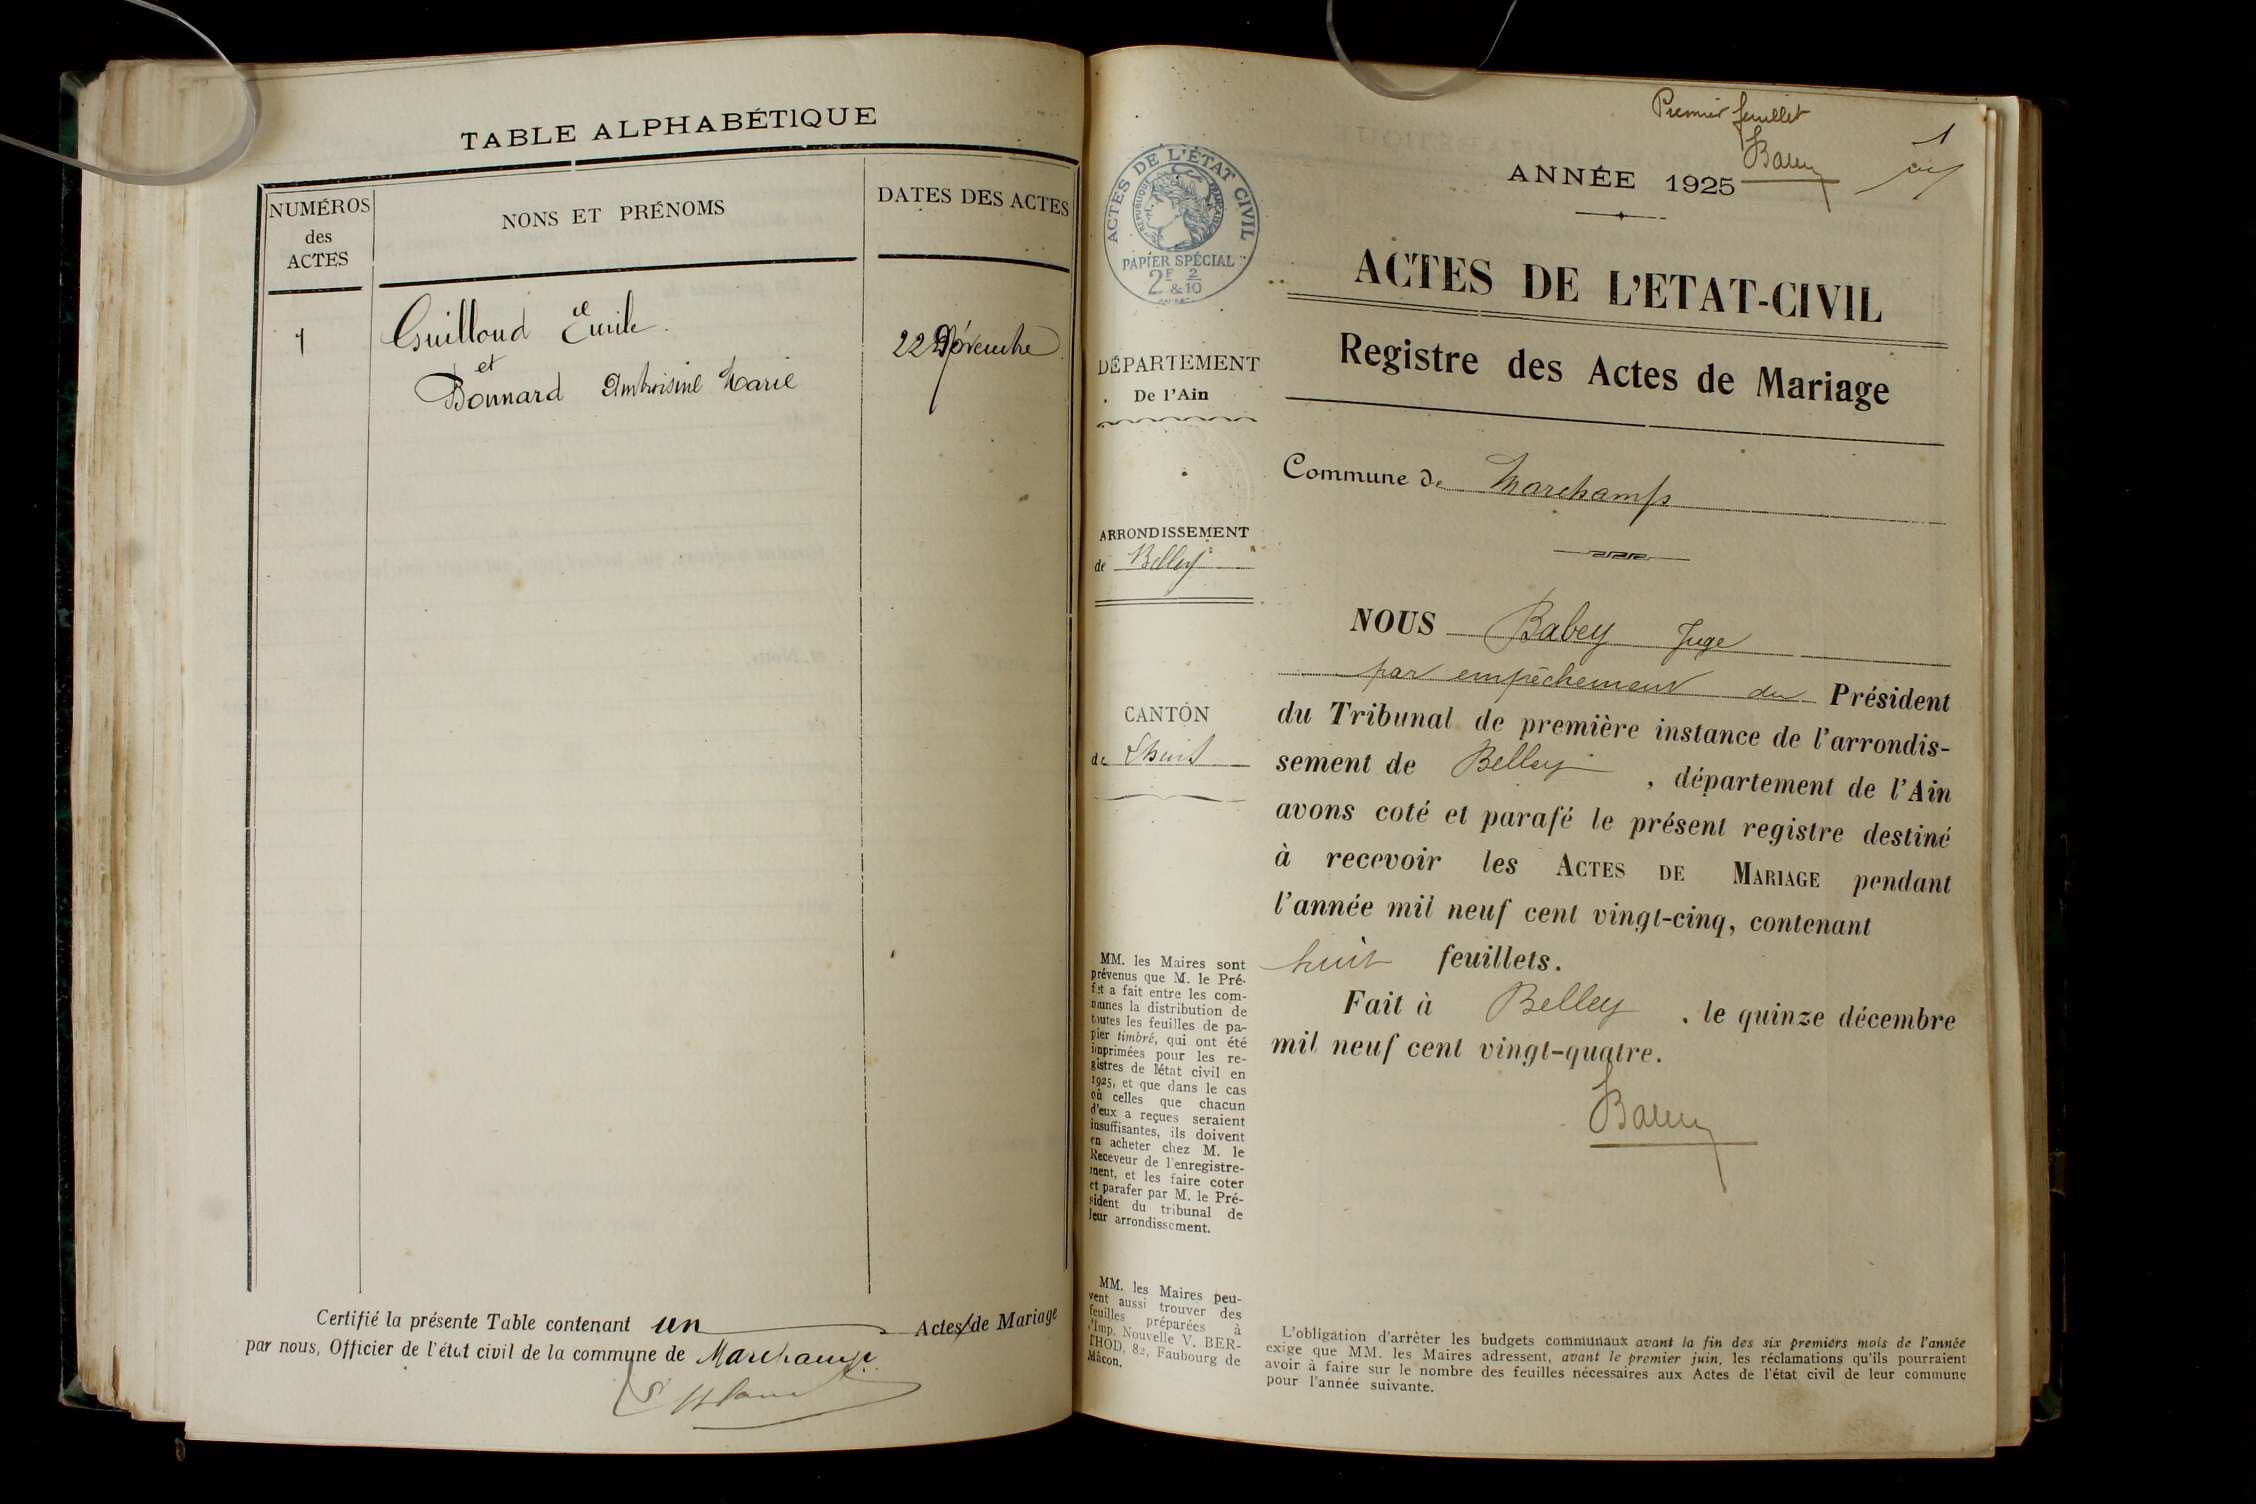 TABLE ALPHABÉTIQUE
NUMÉROS
des
ACTES
NONS ET PRÉNOMS
DATES DES ACTES
1
Guilloud Emile
22
et
Bonnard Ambroisine Marie
Certifié la présente Table contenant un Actes de Mariage
par nous, Officier de l'état civil de la commune de Marchamp
ACTES DE L'ÉTAT CIVIL
RÉPUBLIQUE FRANÇAISE
PAPIER SPÉCIAL
2F & 2/10
DÉPARTEMENT
De l'Ain
ARRONDISSEMENT
de Belley
CANTON
de Lhuis
MM. les Maires sont
prévenus que M. le Pré-
fet a fait entre les com-
munes la distribution de
toutes les feuilles de pa-
pier timbré, qui ont été
imprimées pour les re-
gistres de l'état civil en
1925, et que dans le cas
où celles que chacun
d'eux a reçues seraient
insuffisantes, ils doivent
en acheter chez M. le
Receveur de l'enregistre-
ment, et les faire coter
et parafer par M. le Pré-
sident du tribunal de
leur arrondissement.
MM. les Maires peu-
vent aussi trouver des
feuilles préparées à
l'Imp. Nouvelle V. BER-
THOD, 82, Faubourg de
Mâcon.
Premier feuillet
1
ANNÉE 1925
ACTES DE L'ETAT-CIVIL
Registre des Actes de Mariage
Commune de Marchamps
NOUS Babey Juge
par empêchement du Président
du Tribunal de première instance de l'arrondis-
sement de Belley, département de l'Ain
avons coté et parafé le présent registre destiné
à recevoir les ACTES DE MARIAGE pendant
l'année mil neuf cent vingt-cinq, contenant
huit feuillets.
Fait à Belley, le quinze décembre
mil neuf cent vingt-quatre.
L'obligation d'arrêter les budgets communaux avant la fin des six premiers mois de l'année
exige que MM. les Maires adressent, avant le premier juin, les réclamations qu'ils pourraient
avoir à faire sur le nombre des feuilles nécessaires aux Actes de l'état civil de leur commune
pour l'année suivante.